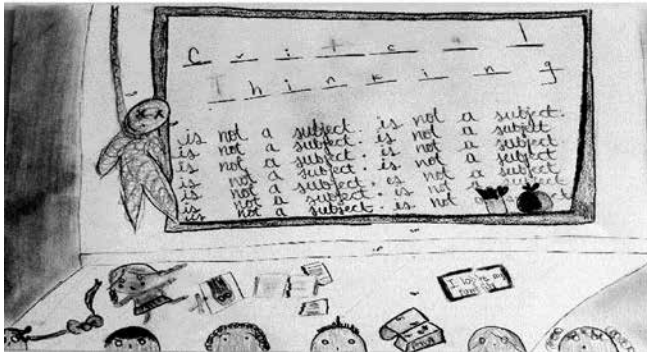 C r i t c a l
T h i n k i n g
is not a subject. is not a subject.
is not a subject. is not a subject
is not a subject. is not a subject
is not a subject. is not a subject
is not a subject. is not a subject
is not a subject. is not a subject
is not a subject. is not a